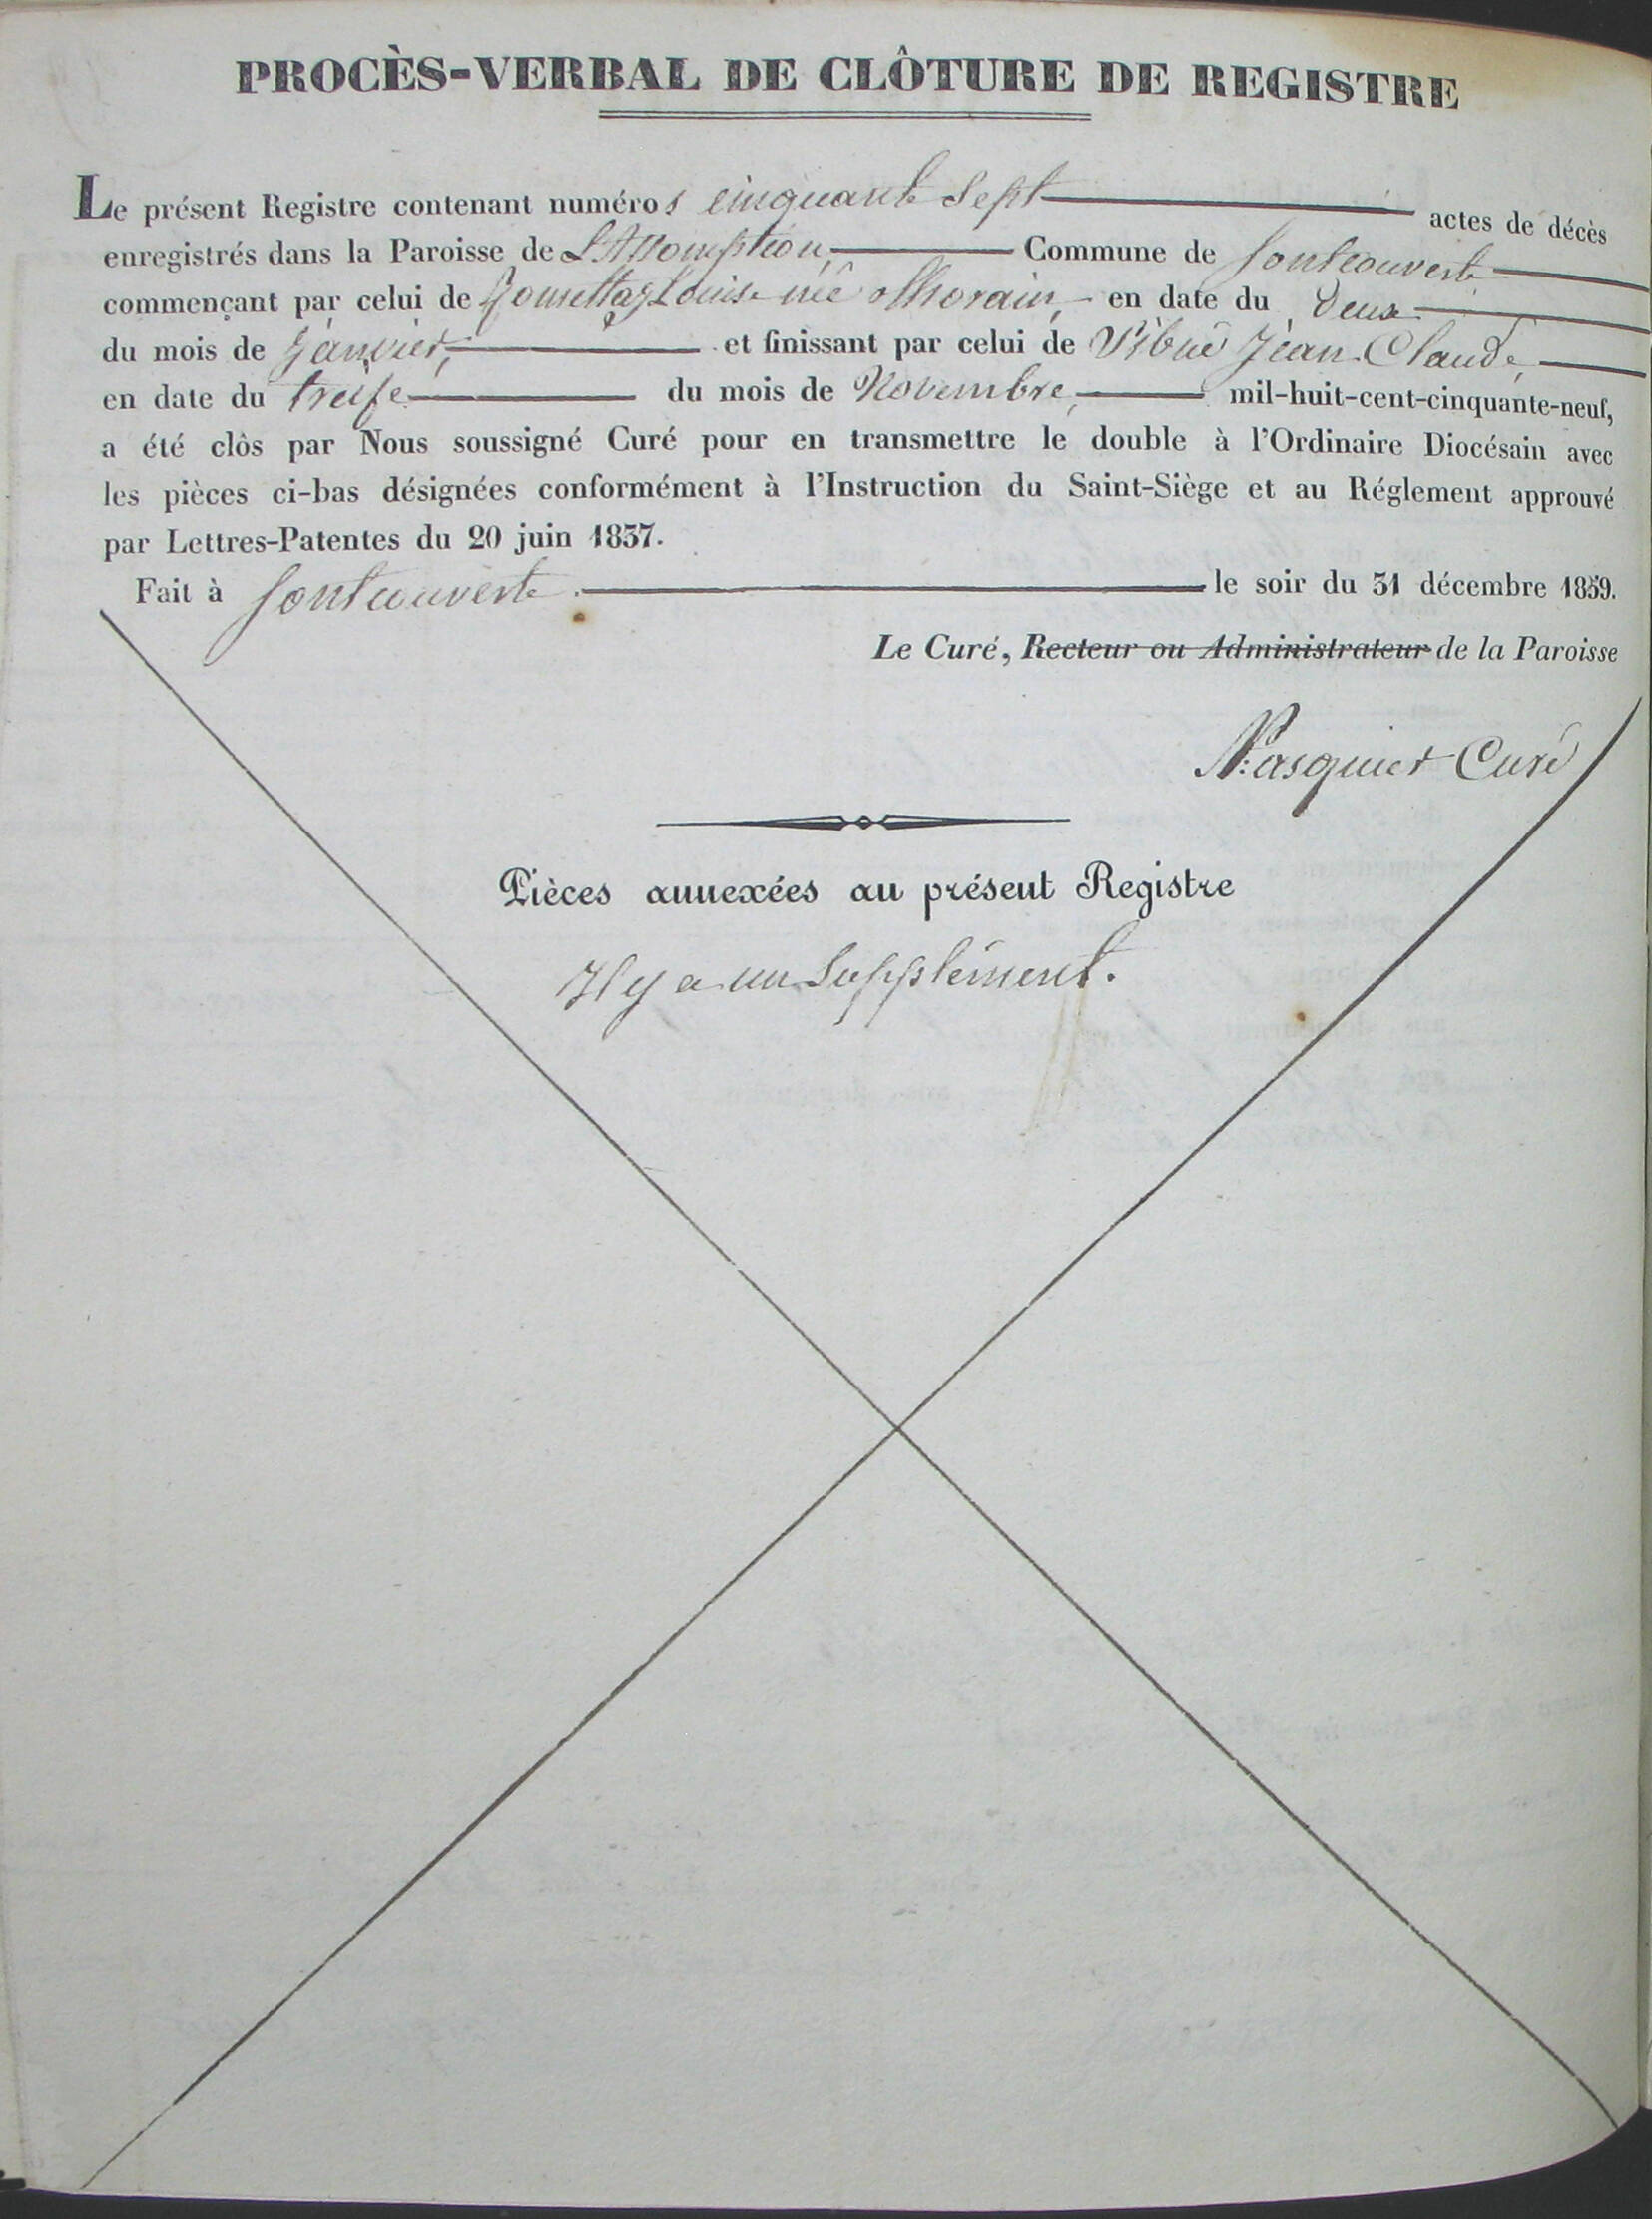 PROCÈS-VERBAL DE CLÔTURE DE REGISTRE
Le présent Registre contenant numéros cinquante Sept actes de décès
enregistrés dans la Paroisse de L'Assomption, Commune de fontcouverte
commençant par celui de Louise née en date du deux
du mois de janvier, et finissant par celui de Jean Claude,
en date du treize du mois de Novembre, mil-huit-cent-cinquante-neuf,
a été clôs par Nous soussigné Curé pour en transmettre le double à l'Ordinaire Diocésain avec
les pièces ci-bas désignées conformément à l'Instruction du Saint-Siège et au Réglement approuvé
par Lettres-Patentes du 20 juin 1837.
Fait à fontcouverte. le soir du 31 décembre 1859.
Le Curé, Recteur ou Administrateur de la Paroisse
Pasquier Curé
Pièces annexées au présent Registre
Il y a un Supplément.